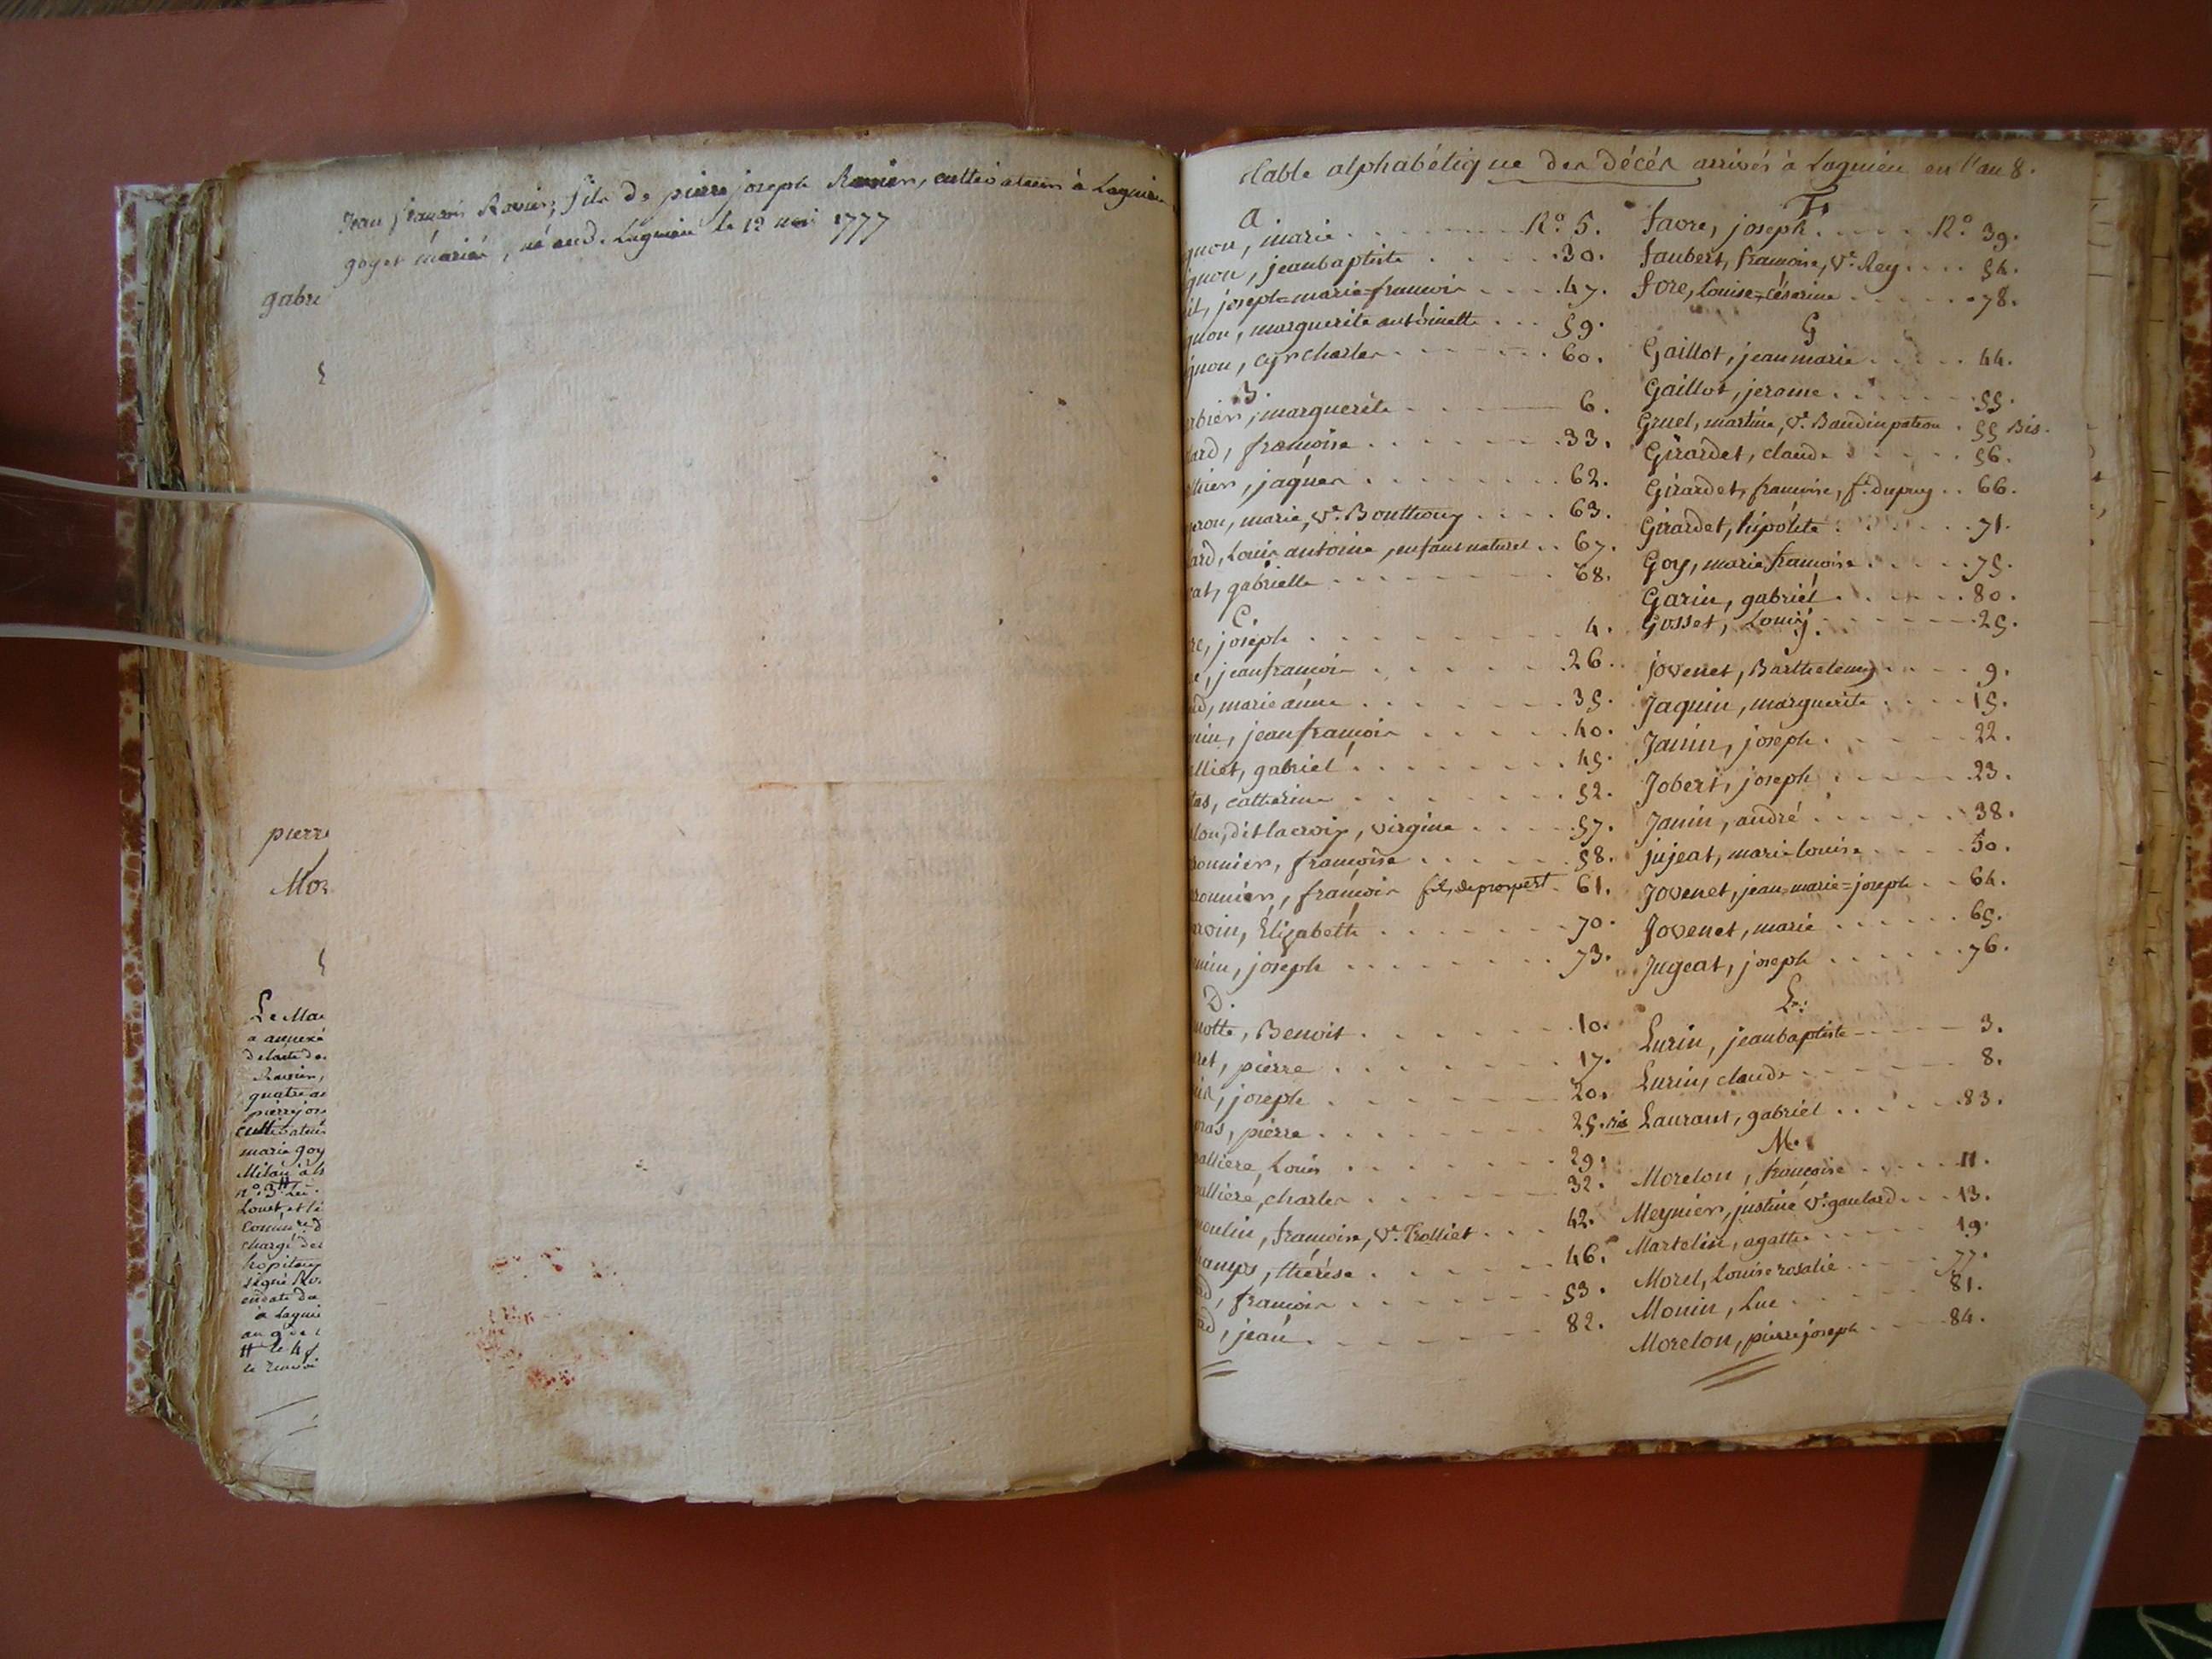 Jean françois Ravier, fils de pierre joseph Ravier, cultivateur à Lagnieu
goyet mariés, né aud. Lagnieu le 12 mai 1777
gabri
pierre
Mor
Le Mai
a annexé
de l'acte de
Ravier,
quatre a
pierre jos
cultivateur
marie goy
Milan à l
n°. 3
Louet, et l
commre d
chargé des
hopitaux
signé Ro
endate du
à Lagnieu
an 9
le 4
le renvoi
Table alphabétique des décés arrivés à Lagnieu en l'an 8.
a
gnon, marie N.° 5.
gnon, jeanbaptiste 30.
il, joseph=marie=francois 47.
gnon, marguerite antoinette 59.
gnon, cyr charles 60.
B
rbier, marguerite 6.
lard, francoise 33.
thier, jaques 62.
ron, marie, Ve. Bouthouy 63.
ard, Louis antoine, enfant naturel 67.
at, gabrielle 68.
C.
re, joseph 4.
e, jean francois 26.
d, marie anne 35.
nin, jean francois 40.
lliet, gabriel 45.
tas, catherine 52.
lon, dit lacroix, virgine 57.
onnier, francoise 58.
onnier, francois fils de prospert 61.
rvoin, Élizabeth 70.
min, joseph 73.
D.
notte, Benoit 10.
ret, pierre 17.
is, joseph 20.
ras, pierre 25. bis
alliere, Louis 29.
alliere, charles 32.
moulin, francoise, Ve. Trolliet 42.
hamps, thérése 46.
d, francois 53.
ard, jean 82.
F
favre, joseph N.° 39.
faubert, francoise, Ve. Rey 54.
fore, Louise=césarine 78.
G
Gaillot, jean marie 44.
Gaillot, jerome 55.
Gruel, martine, Ve. Baudin patron 55 Bis.
Girardet, claude 56.
Girardet, francoise, fe. dupuy 66.
Girardet, hipolite 71.
Goy, marie francoise 75.
Garin, gabriel 80.
Gosset, Louis 25.
j.
jovenet, Barthelemy 9.
Jaquin, marguerite 15.
Janin, joseph 22.
Jobert, joseph 23.
Janin, andré 38.
jujeat, marie louise 50.
Jovenet, jean=marie=joseph 64.
Jovenet, marie 65.
Jugeat, joseph 76.
L.
Lurin, jean baptiste 3.
Lurin, claude 8.
Laurant, gabriel 83.
M.
Morelon, francoise 11.
Meynier, justine Ve. goulard 13.
Martelin, agathe 19.
Morel, Louise rosalie 77.
Monin, Luc 81.
Morelon, pierre joseph 84.